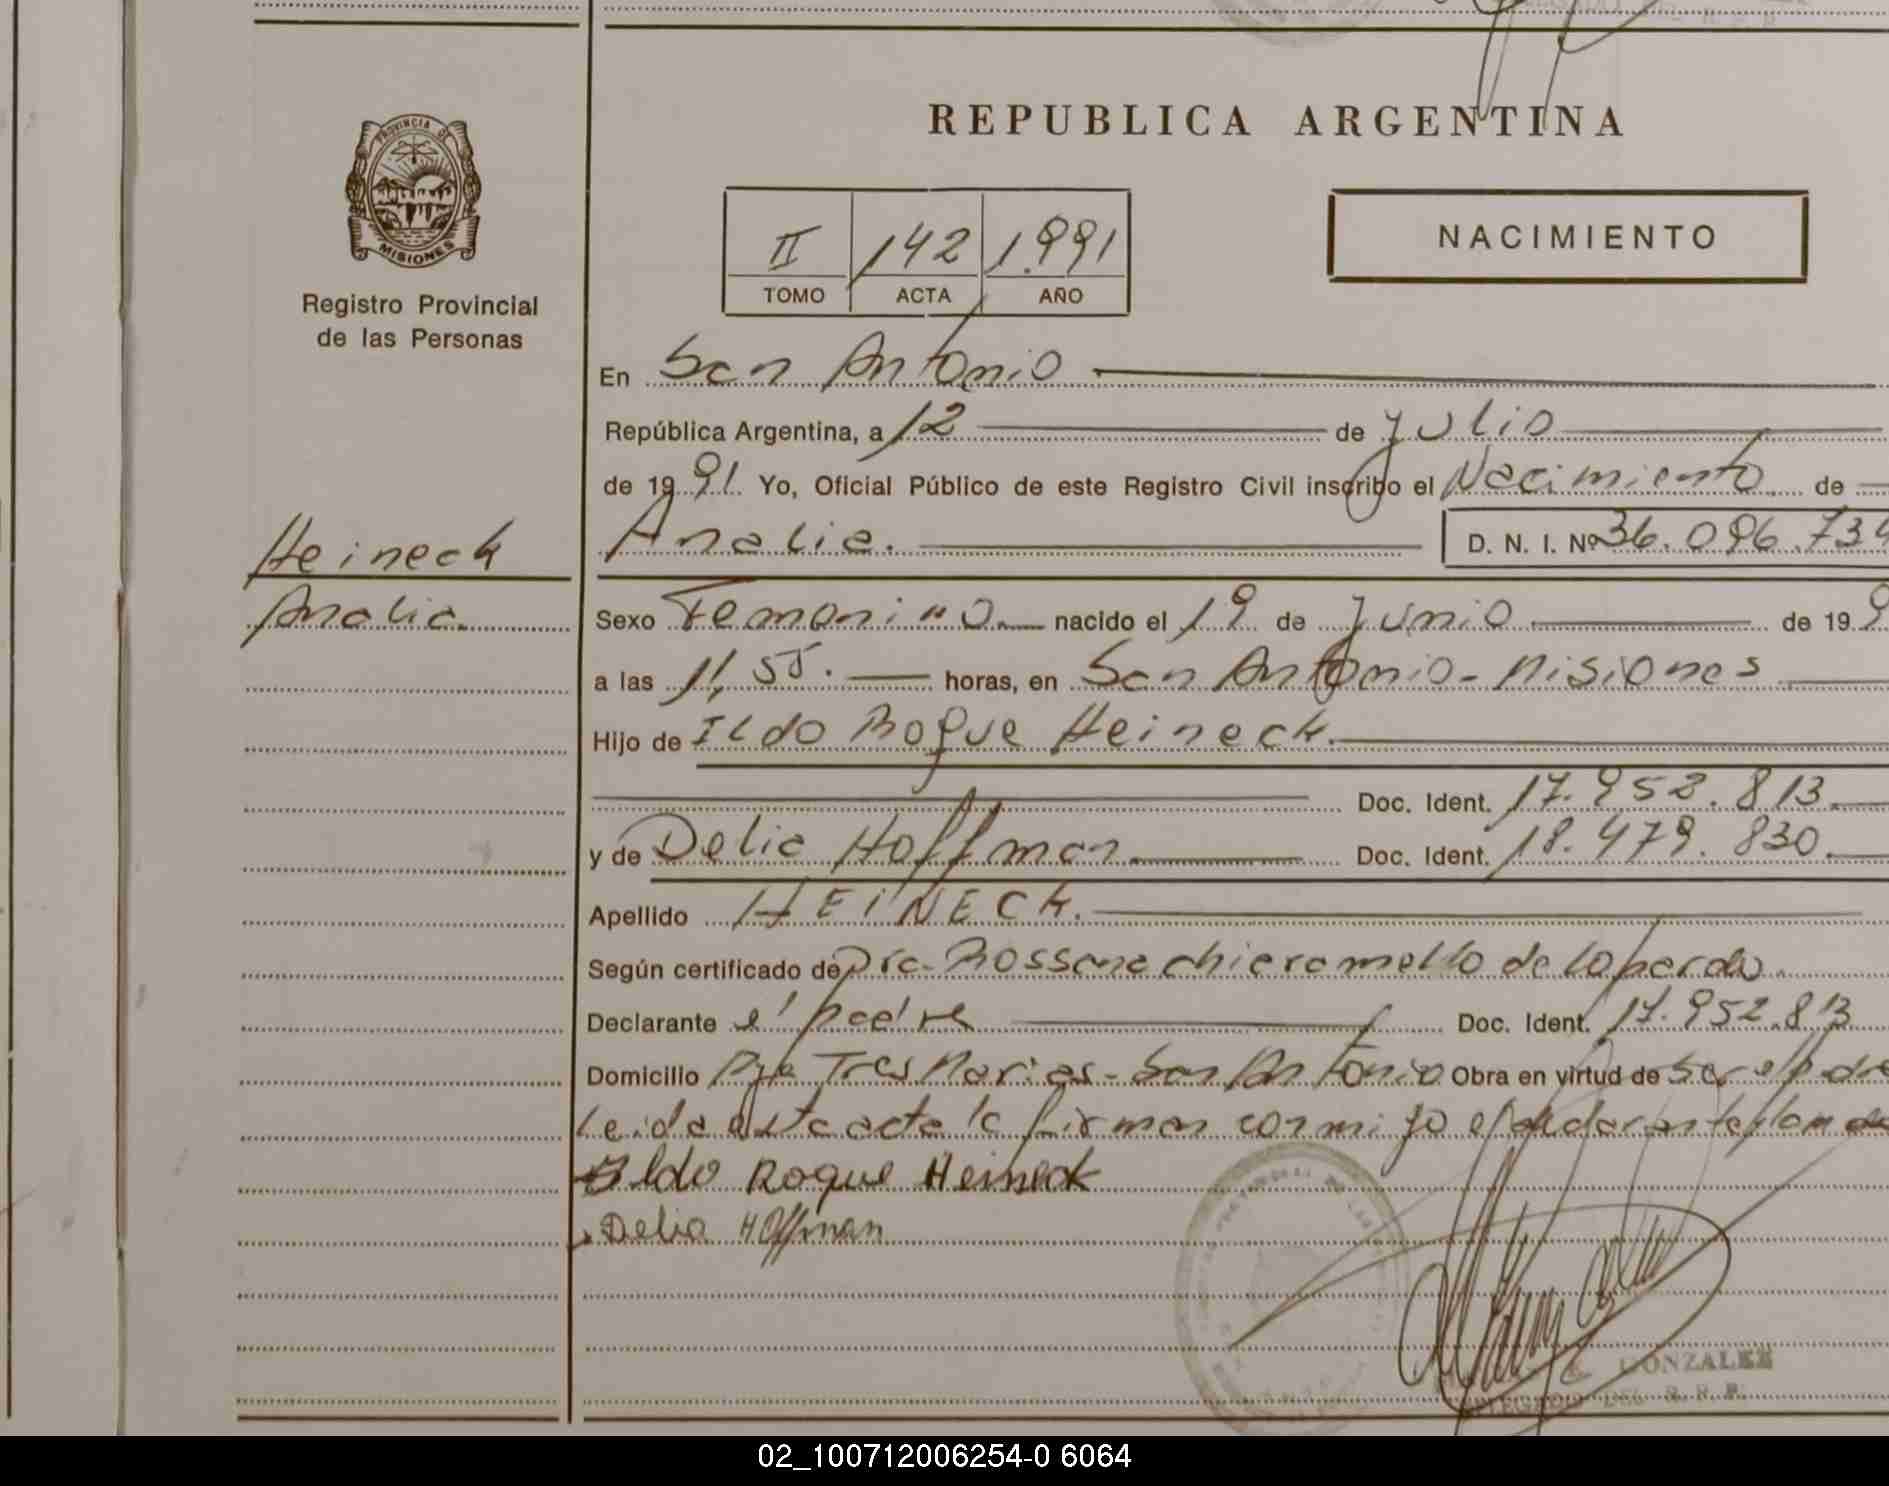 REPUBLICA ARGENTINA
PROVINCIA DE
MISIONES
Registro Provincial
de las Personas
NACIMIENTO
II 142 1.991
TOMO ACTA AÑO
En San Antonio
República Argentina, a 12 de Julio
de 1991. Yo, Oficial Público de este Registro Civil inscribo el Nacimiento de
Heineck
Analia. D. N. I. Nº 36.096.734
Analia.
Sexo Femenino. nacido el 19 de Junio de 199
a las 11,55. horas, en San Antonio - Misiones
Hijo de Ildo Roque Heineck.
Doc. Ident. 17.952.813.
y de Delia Hoffman Doc. Ident. 18.479.830.
Apellido HEINECK.
Según certificado de Dra. Rossana chiaramello de loparda.
Declarante el padre Doc. Ident. 17.952.813
Domicilio Pje Tres Marias - San Antonio Obra en virtud de ser el padre
Leida esta acta la firman conmigo el declarante y la madre
Ildo Roque Heineck
Delia Hoffman
GONZALEZ
DELEGADO DEL R. P. P.
02_100712006254-0 6064